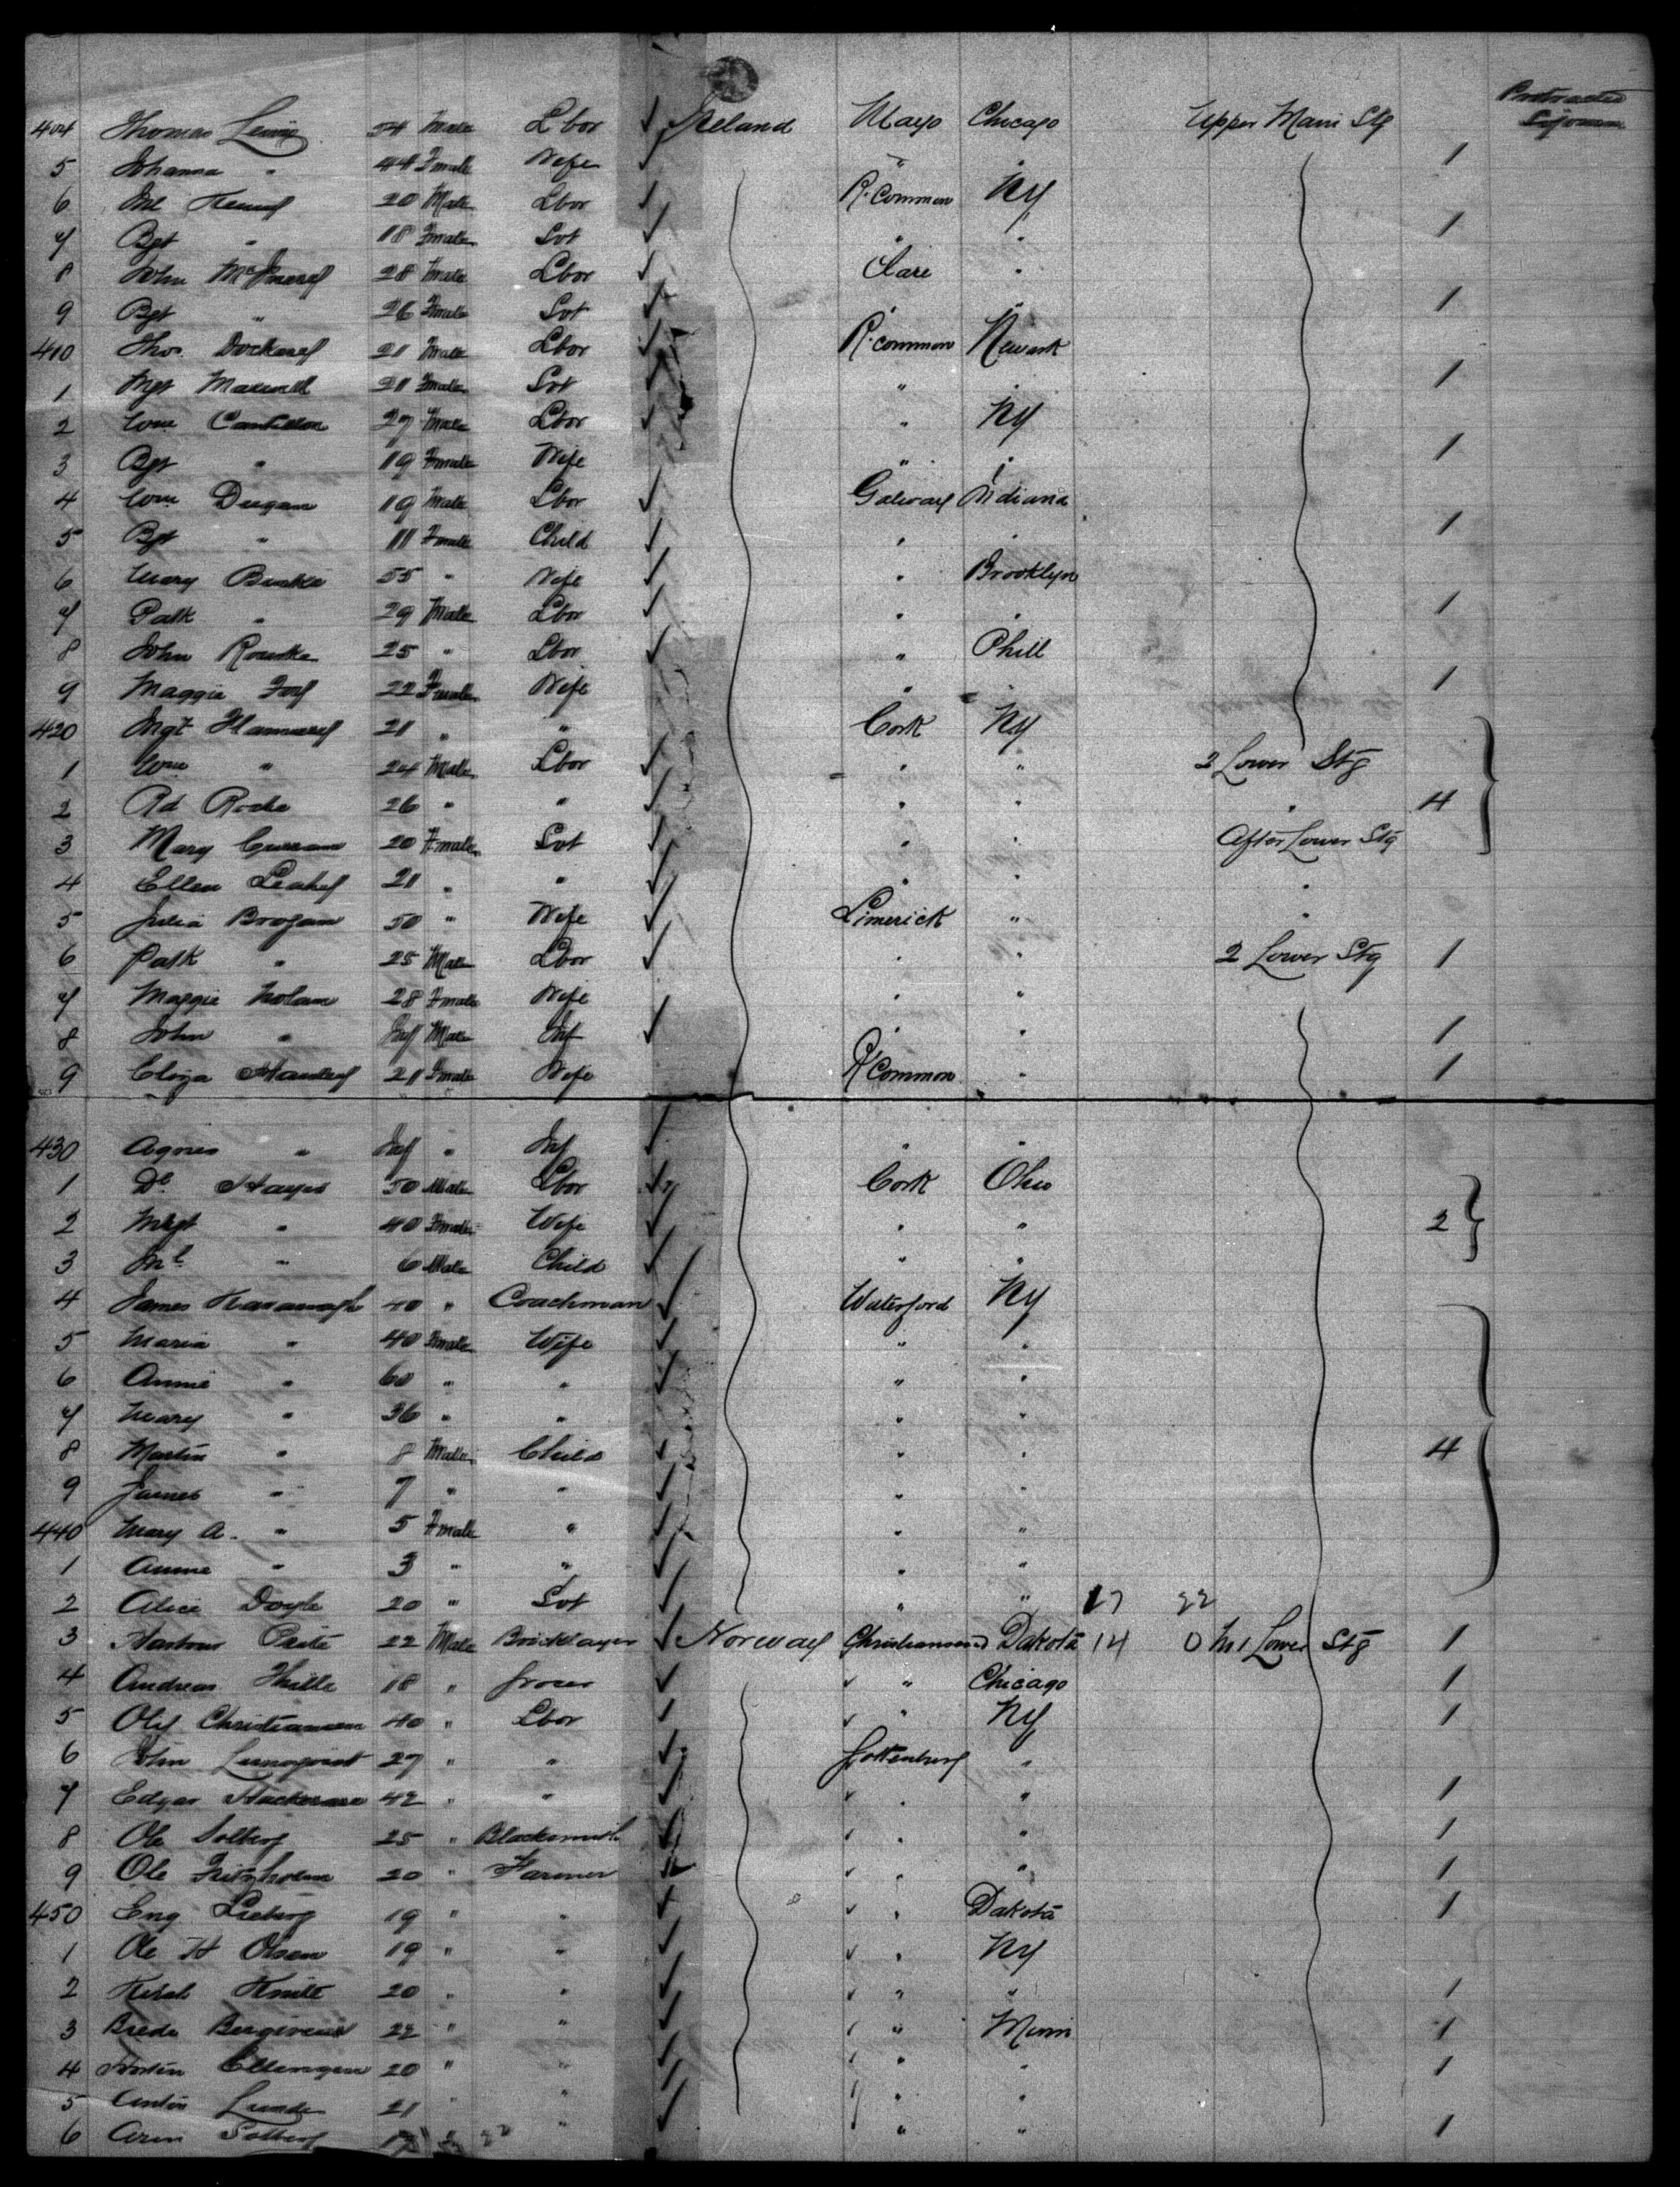 Protracted Sojourn
404 Thomas 54 Male Lbor Ireland Mayo Chicago Upper Main Stg
5 Johanna " 44 Fmale Wife " " 1
6 Ml 20 Male Lbor R.common NY
7 Bgt " 18 Fmale Svt " " 1
8 John 28 Male Lbor Clare "
9 Bgt " 26 Fmale Svt " " 1
410 Thos. Dockery 21 Male Lbor R.common Newark
1 Mgt Maxwell 21 Fmale Svt " " 1
2 Wm Cantillon 27 Male Lbor " NY
3 Bgt " 19 Fmale Wife " " 1
4 Wm Dugan 19 Male Lbor Galway Indiana
5 Bgt " 11 Fmale Child " " 1
6 Mary Burke 55 " Wife " Brooklyn
7 Patk " 29 Male Lbor " " 1
8 John Rourke 25 " Lbor " Phill
9 Maggie Foy 22 Fmale Wife " " 1
420 Mgt 21 " " Cork NY
1 Wm " 24 Male Lbor " " 2 Lower Stg
2 Rd Roche 26 " " " " " 4
3 Mary Curran 20 Fmale Svt " " After Lower Stg
4 Ellen Leahy 21 " " " " "
5 Julia Brogan 50 " Wife Limerick " "
6 Patk " 25 Male Lbor " " 2 Lower Stg 1
7 Maggie Nolan 28 Fmale Wife " "
8 John " Inf Male Inf " " 1
9 Eliza 21 Fmale Wife R'Common " 1
430 Agnes " Inf " Inf " "
1 Dl Hayes 50 Male Lbor Cork Ohio
2 Mgt " 40 Fmale Wife " " 2
3 Ml " 6 Male Child " "
4 James Kavanagh 40 " Coachman Waterford NY
5 Maria " 40 Fmale Wife " "
6 Annie " 60 " " " "
7 Mary " 36 " " " "
8 Martin " 8 Male Child " " 4
9 James " 7 " " " "
440 Mary A. " 5 Fmale " " "
1 Annie " 3 " " " "
2 Alice Doyle 20 " Svt " " 17 22
3 22 Male Bricklayer Norway Christiansand Dakota 14 0 No 1 Lower Stg 1
4 Andreas 18 " Grocer " Chicago 1
5 Olif Christiansen 40 " Lbor " NY 1
6 John Lunnqvist 27 " " Gottenburg "
7 Edgar 42 " " " " 1
8 Ole Solberg 25 " Blacksmith " " 1
9 Ole 20 " Farmer " " 1
450 Eng 19 " " " Dakota 1
1 Ole H Olsen 19 " " " NY
2 20 " " " " 1
3 22 " " " Minn 1
4 Ellengen 20 " " " " 1
5 Anton Lunde 21 " " " "
6 Aren Solberg 17 " " " " 1